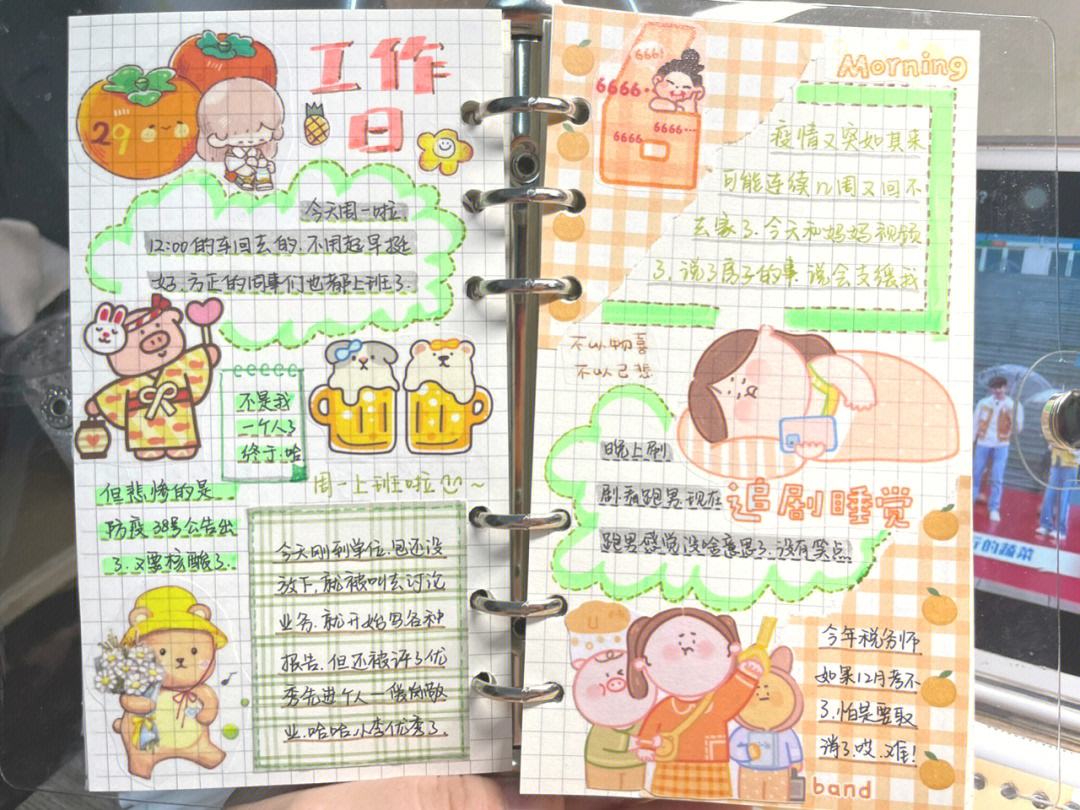 工作
日
29
今天周一啦,
12:00的车回去的.不用起早挺
好.方正的同事们也都上班了.
不是我
一个人了
终于.哈
周一上班啦~
但悲惨的是
防疫38号公告出
了.又要核酸了.
今天刚到单位.包还没
放下,就被叫去讨论
业务.就开始写各种
报告.但还被评了优
秀先进个人—爱岗敬
业.哈哈,小李优秀了.
666!
6666·
6666···
6666
Morning
疫情又突如其来
可能连续n周又回不
去家了.今天和妈妈视频
了.说了房子的事.说会支援我
不以物喜
不以己悲
晚上刷
剧,看跑男.现在
追剧睡觉
跑男感觉没啥意思了.没有笑点
今年税务师
如果12月考不
了.怕是要取
消了哎.难!
band
行的蔬菜